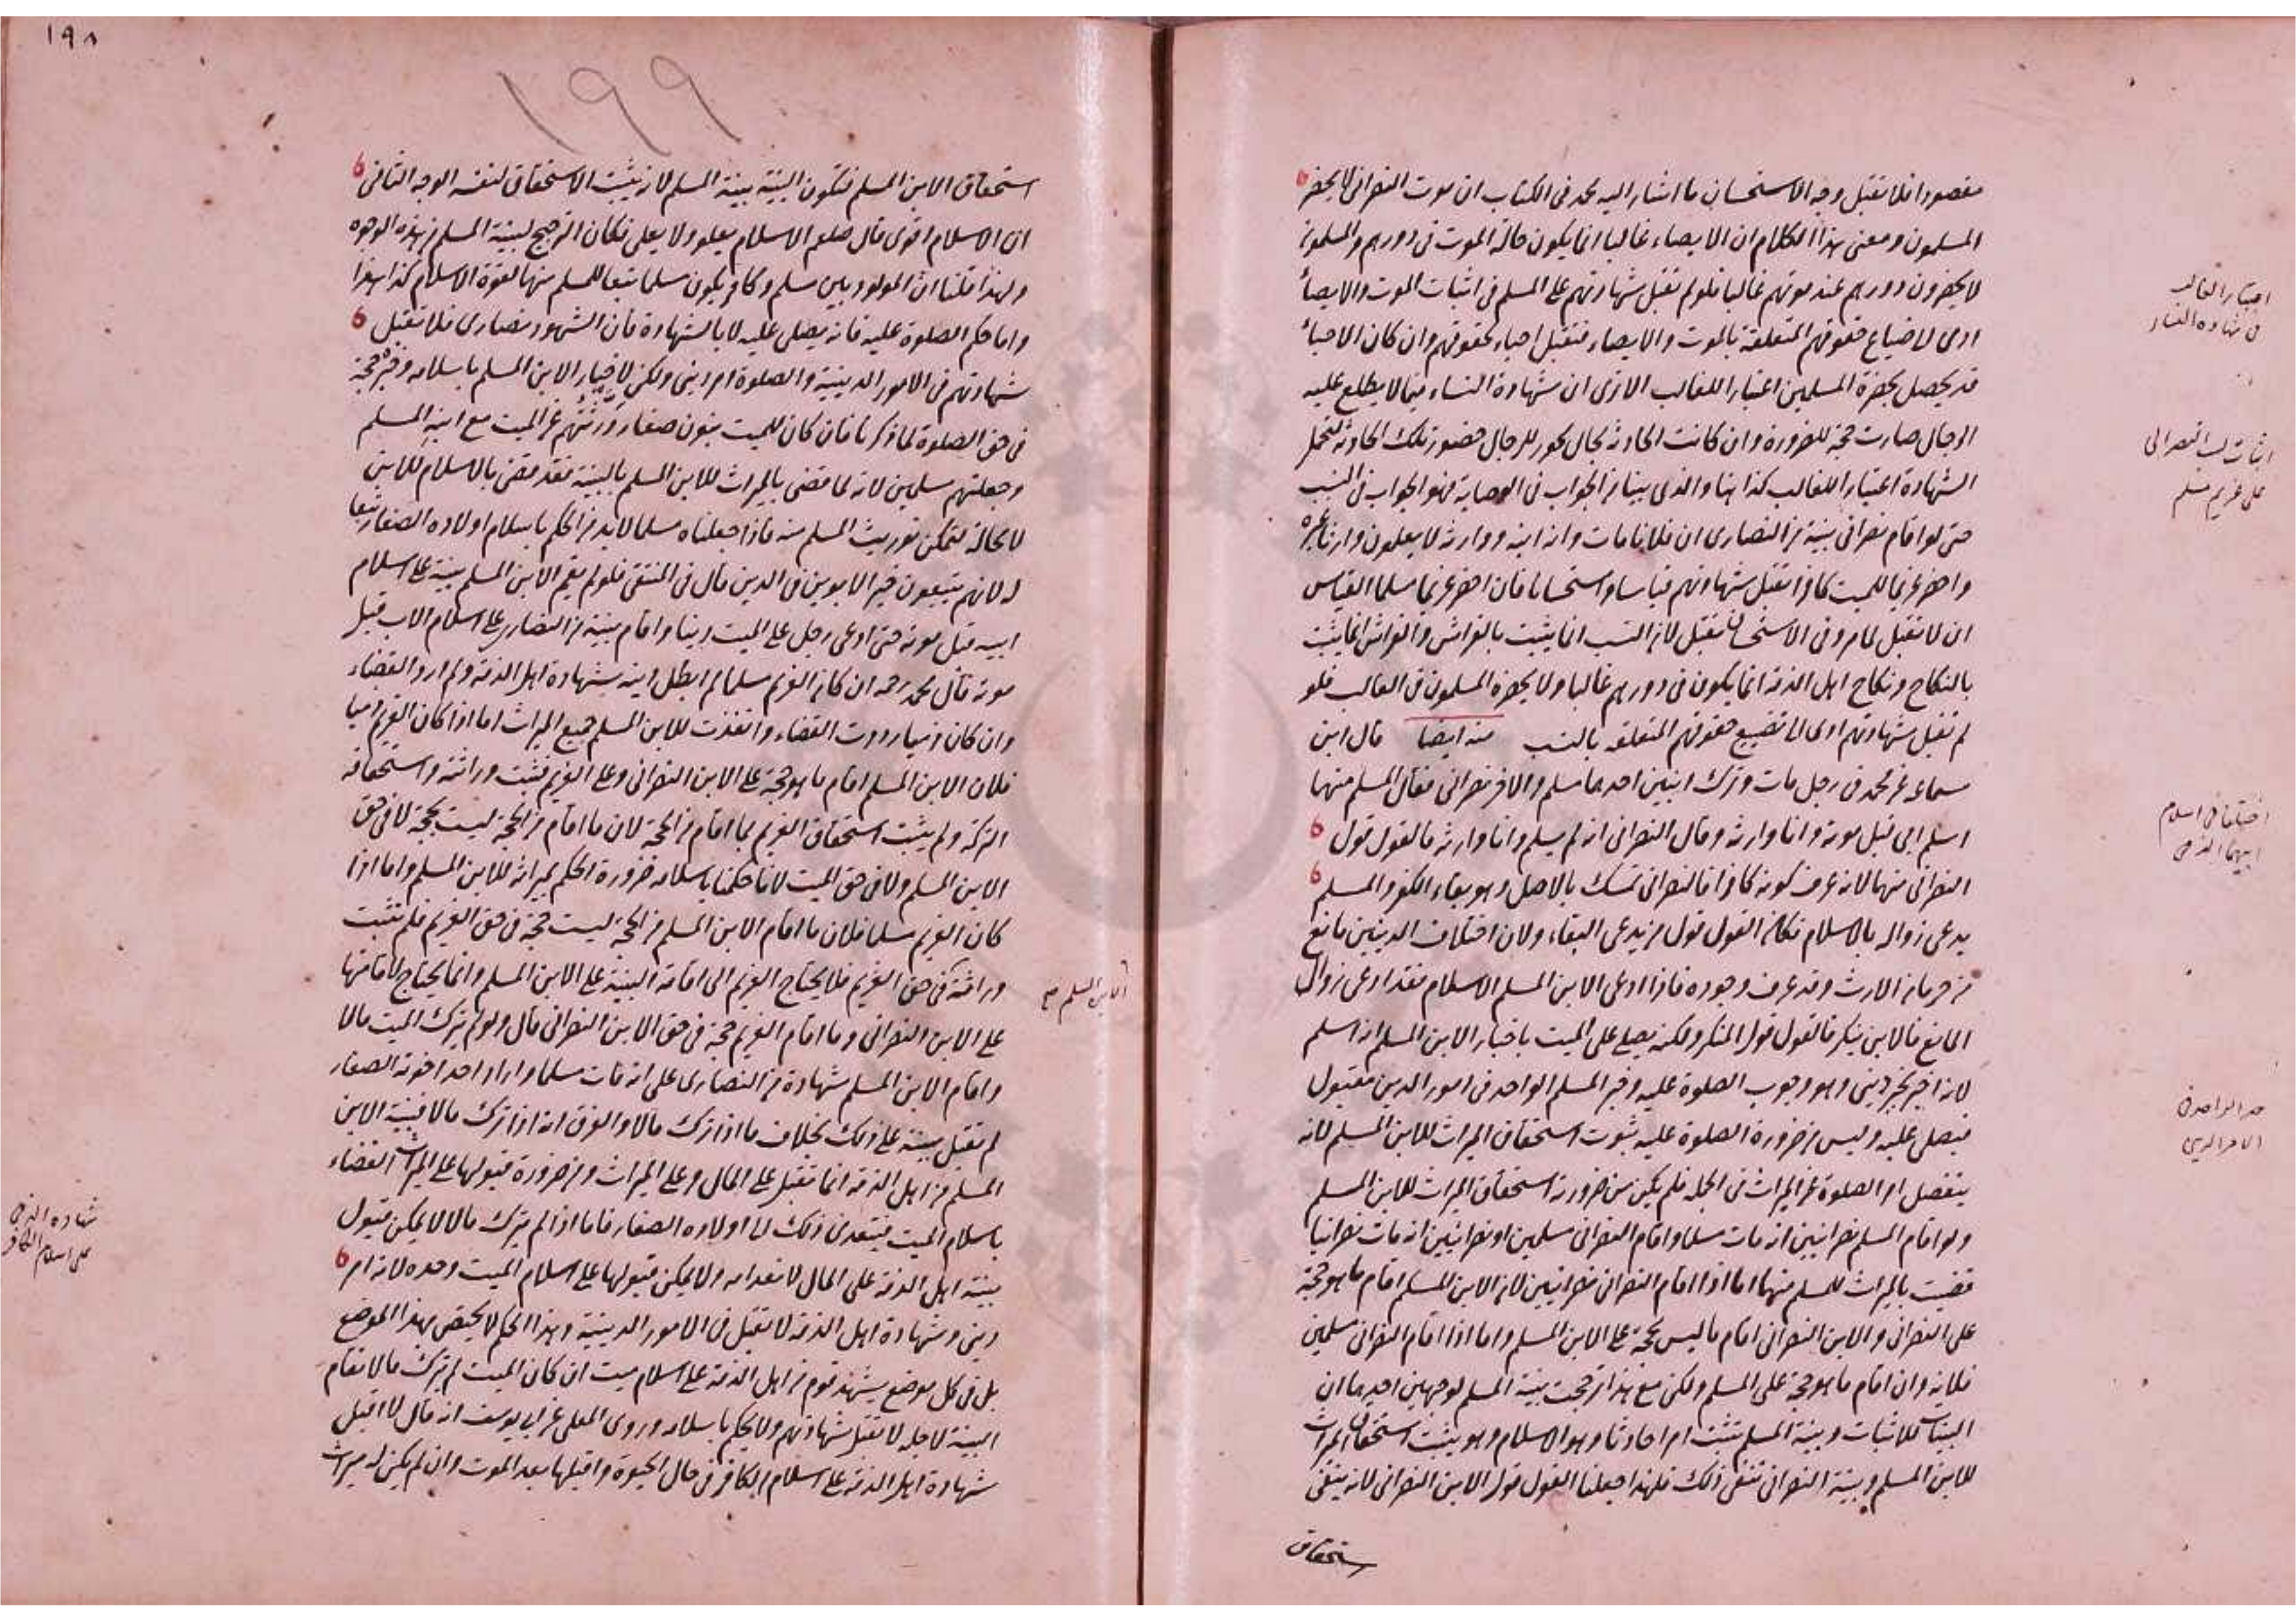 مقصودا فلا تقبل وجه الاستحسان ما اشار اليه محمد فى الكتاب ان موت النصرانى لا يحضره
المسلمون ومعنى هذا الكلام ان الايصاء غالبا انما يكون حالة الموت فى دورهم والمسلمون
لا يحضرون دورهم عند موتهم غالبا فلو لم تقبل شهادتهم على المسلم فى اثبات الموت والايصاء
ادى لا ضياع حقوقهم المتعلقة بالموت والايصاء فتقبل احياء لحقوقهم وان كان الاحياء
قد يحصل بحضرة المسلمين اعتبارا للغالب الا ترى ان شهادة النساء فيما لا يطلع عليه
الرجال صارت حجة للضرورة وان كانت الحادثة بحال يجوز للرجال حضور تلك الحادثة لتحمل
الشهادة اعتبارا للغالب كذا هنا والذى بينا من الجواب فى الوصاية فهو الجواب فى النسب
حتى لو اقام نصرانى بينة من النصارى ان فلانا مات وانه ابنه ووارثه لا يعلمون وارثا غيره
واحضر غريما للميت كافرا تقبل شهادتهم قياسا واستحسانا فان احضر غريما مسلما القياس
ان لا تقبل لما مر وفى الاستحسان تقبل لان النسب انما يثبت بالفراش والفراش انما يثبت
بالنكاح ونكاح اهل الذمة انما يكون فى دورهم غالبا ولا يحضره المسلمون فى الغالب فلو
لم تقبل شهادتهم ادى الى تضييع حقوقهم المتعلقه بالنسب منه ايضا قال ابن
سماعه عن محمد فى رجل مات وترك ابنين احدهما مسلم والاخر نصرانى فقال المسلم منهما
اسلم ابى قبل موته وانا وارثه وقال النصرانى انه لم يسلم وانا وارثه فالقول قول
النصرانى منهما لانه عرف كونه كافرا فالنصرانى تمسك بالاصل وهو بقاء الكفر والمسلم
يدعى زواله بالاسلام فكان القول قول من يدعى البقاء ولان اختلاف الدينين مانع
من حرمان الارث وقد عرف وجوده فاذا ادعى الابن المسلم الاسلام فقد ادعى زوال
المانع فالابن ينكر فالقول قول المنكر ولكنه يصلى على الميت باخبار الابن المسلم انه اسلم
لانه اخبر بخبر دينى وهو وجوب الصلوة عليه وخبر المسلم الواحد فى امور الدين مقبول
فيصلى عليه وليس من ضرورة الصلوة عليه ثبوت استحقاق الميراث للابن المسلم لانه
ينفصل امر الصلوة عن الميراث فى الجملة فلم يكن من ضرورته استحقاق الميراث للابن المسلم
ولو اقام المسلم نصرانيين انه مات مسلما واقام النصرانى مسلمين او نصرانيين انه مات نصرانيا
قضيت بالميراث للمسلم منهما اما اذا اقام النصرانى نصرانيين لان الابن المسلم اقام ما هو حجة
على النصرانى والابن النصرانى اقام ما ليس بحجة على الابن المسلم واما اذا اقام النصرانى مسلمين
فلانه وان اقام ما هو حجة على المسلم ولكن مع هذا ترجحت بينة المسلم لوجهين احدهما ان
البينات للاثبات وبينة المسلم تثبت امرا حادثا وهو الاسلام وهو يثبت استحقاق الميراث
للابن المسلم وبينة النصرانى تنفى ذلك فلهذا جعلنا القول قول الابن النصرانى لانه ينفى
استحقاق
اعتبار الغالب
فى شهادة الكفار
اثبات النصرانى
على غريم مسلم
اختلفا فى اسلام
ابيهما الذمى
خبر الواحد فى
الامر الدينى
١٩٨
١٩٩
استحقاق الابن المسلم فتكون البينة بينة المسلم لانه يثبت الاستحقاق لنفسه الوجه الثانى
ان الاسلام اقوى قال صلعم الاسلام يعلو ولا يعلى فكان الترجيح لبينة المسلم من هذه الوجوه
ولهذا قلنا ان المولود بين مسلم وكافر يكون مسلما تبعا للمسلم منهما لقوة الاسلام كذا هذا
واما حكم الصلوة عليه فانه يصلى عليه لا بالشهادة فان الشهود نصارى فلا تقبل
شهادتهم فى الامور الدينية والصلوة امر دينى ولكن لاخبار الابن المسلم باسلامه وخبره حجة
فى حق الصلوة لما ذكرنا فان كان للميت بنون صغار ورثتهم عن الميت مع ابنه المسلم
وجعلتهم مسلمين لانه لما قضى بالميراث للابن المسلم بالبينة فقد قضى بالاسلام للابن
لا محالة لتمكن توريث المسلم منه فاذا جعلناه مسلما لا بد من الحكم باسلام اولاده الصغار تبعا
له لانهم يتبعون خير الابوين فى الدين قال فى المنتقى فلو لم يقم الابن المسلم بينة على اسلام
ابيه قبل موته حتى ادعى رجل على الميت دينا واقام بينة من النصارى على اسلام الاب قبل
موته قال محمد رحمه ان كان الغريم مسلما لم ابطل دينه بشهادة اهل الذمة ولم ارد القضاء
وان كان ذميا رددت القضاء وانفذت للابن المسلم جميع الميراث اما اذا كان الغريم ذميا
فلان الابن المسلم اقام ما هو حجة على الابن النصرانى وعلى الغريم فثبت وراثته واستحقاقه
التركة ولم يثبت استحقاق الغريم بما اقام من الحجة لان ما اقام من الحجة ليست بحجة لا فى حق
الابن المسلم ولا فى حق الميت لانا حكمنا باسلامه ضرورة الحكم بميراثه للابن المسلم واما اذا
كان الغريم مسلما فلان ما اقام الابن المسلم من الحجة ليست حجة فى حق الغريم فلم تثبت
وراثته فى حق الغريم فلا يحتاج الغريم الى اقامة البينة على الابن المسلم وانما يحتاج لاقامتها
على الابن النصرانى وما اقام الغريم حجة فى حق الابن النصرانى قال ولو لم يترك الميت مالا
واقام الابن المسلم شهادة من النصارى على انه مات مسلما واراد احد اخوته الصغار
لم تقبل بينته على ذلك بخلاف ما اذا ترك مالا والفرق انه اذا ترك مالا فبينة الابن
المسلم من اهل الذمة انما تقبل على المال وعلى الميراث ومن ضرورة قبولها على الميراث القضاء
باسلام الميت فيتعدى ذلك الى اولاده الصغار فاما اذا لم يترك مالا لا يمكن قبول
بينة اهل الذمة على المال لانعدامه ولا يمكن قبولها على اسلام الميت وحده لانه امر
دينى وشهادة اهل الذمة لا تقبل فى الامور الدينية وهذا الحكم لا يختص بهذا الموضع
بل فى كل موضع يشهد قوم من اهل الذمة على اسلام ميت ان كان الميت لم يترك مالا تقام
البينة لاجله لا تقبل شهادتهم ولا يحكم باسلامه وروى المعلى عن ابى يوسف انه قال لا اقبل
شهادة اهل الذمة على اسلام الكافر فى حال الحيوة واقبلها بعد الموت وان لم يكن له ميراث
الابن المسلم صح
شهادة الذمى
على اسلام الكافر